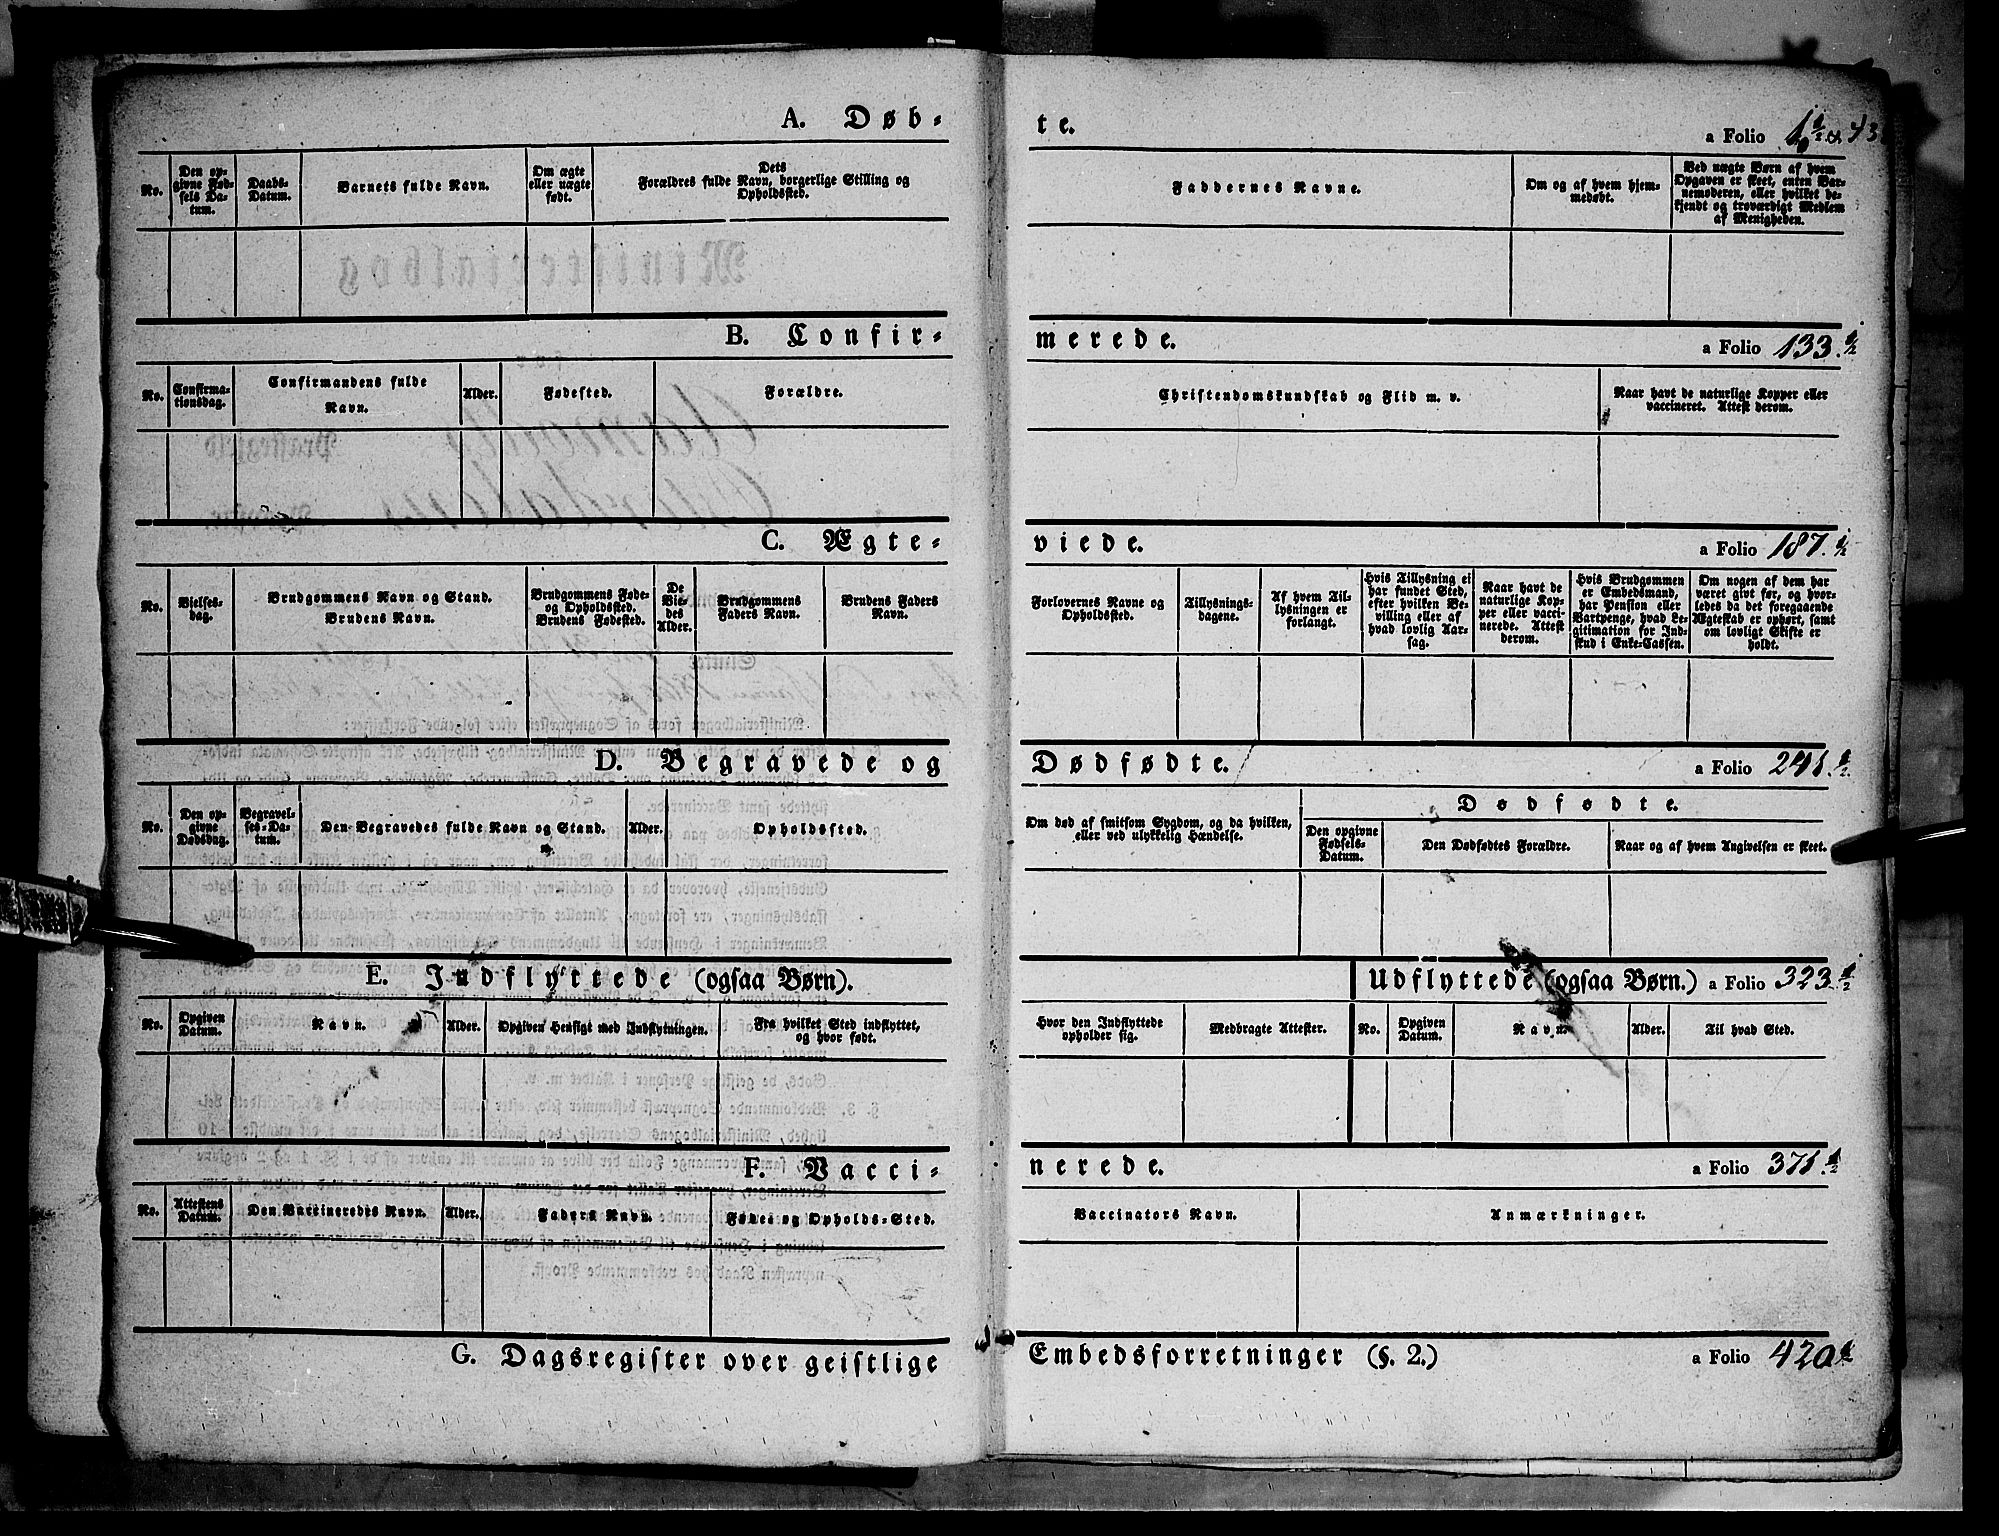 A. Døb-
te.
a Folio
No.
Den op-
givne Fød-
sels Da-
tum.
Daabs-
Datum.
Barnets fulde Navn.
Om ægte
eller uægte
født.
Dets
Forældres fulde Navn, borgerlige Stilling og
Opholdssted.
Faddernes Navne.
Om og af hvem hjem-
medøbt.
Ved uægte Børn af hvem
Opgaven er skeet, enten Bar-
nemoderen, eller hvilket be-
kjendt og troværdigt Medlem
af Menigheden.
B. Confir-
merede.
a Folio 133.
No.
Confirma-
tionsdag.
Confirmandens fulde
Navn.
Alder.
Fødested.
Forældre.
Christendomskundskab og Flid m. v.
Naar havt de naturlige Kopper eller
vaccineret. Attest derom.
C. Ægte-
viede.
a Folio 187.
No.
Vielses-
dag.
Brudgommens Navn og Stand.
Brudens Navn.
Brudgommens Føde-
og Opholdssted.
Brudens Fødested.
De
Vie-
des
Alder.
Brudgommens
Faders Navn.
Brudens Faders
Navn.
Forlovernes Navne og
Opholdssted.
Tillysnings-
dagene.
Af hvem Til-
lysningen er
forlangt.
Hvis Tillysning ei
har fundet Sted,
efter hvilken Be-
villing eller af
hvad lovlig Aar-
sag.
Naar havt de
naturlige Kop-
per eller vacci-
nerede. Attest
derom.
Hvis Brudgommen
er Embedsmand,
har Pension eller
Vartpenge, hvad Le-
gitimation for Ind-
skud i Enke-Cassen.
Om nogen af dem har
været gift før, og hvor-
ledes da det foregaaende
Ægteskab er ophørt, samt
om lovligt Skifte er
holdt.
D. Begravede og
Dødfødte.
a Folio 241.
No.
Den op-
givne
Dødsdag.
Begravel-
ses-Da-
tum.
Den Begravedes fulde Navn og Stand.
Alder.
Opholdssted.
Om død af smitsom Sygdom, og da hvilken,
eller ved ulykkelig Hændelse.
Dødfødte.
Den opgivne
Fødsels-
Datum.
Den Dødfødtes Forældre.
Naar og af hvem Angivelsen er skeet.
E. Indflyttede (ogsaa Børn).
Udflyttede (ogsaa Børn.) a Folio 323
No.
Opgiven
Datum.
Navn.
Alder.
Opgiven Hensigt med Indflytningen.
Fra hvilket Sted indflyttet,
og hvor født.
Hvor den Indflyttede
opholder sig.
Medbragte Attester.
No.
Opgiven
Datum.
Navn
Alder.
Til hvad Sted.
F. Vacci-
nerede.
a Folio 371.
No.
Attestens
Datum.
Den Vaccineredes Navn.
Alder.
Faders Navn.
Føde- og Opholds-Sted.
Vaccinators Navn.
Anmærkninger.
G. Dagsregister over geistlige
Embedsforretninger (§. 2.)
a Folio 420